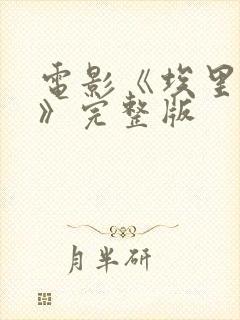 電影《埃里
》完整版
月半研